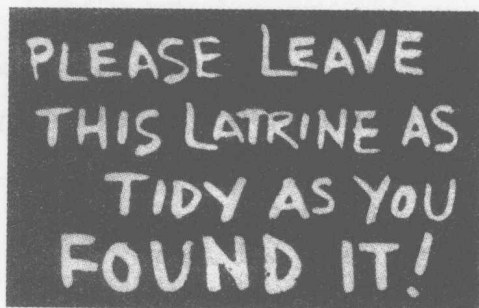 PLEASE LEAVE
THIS LATRINE AS
TIDY AS YOU
FOUND IT!